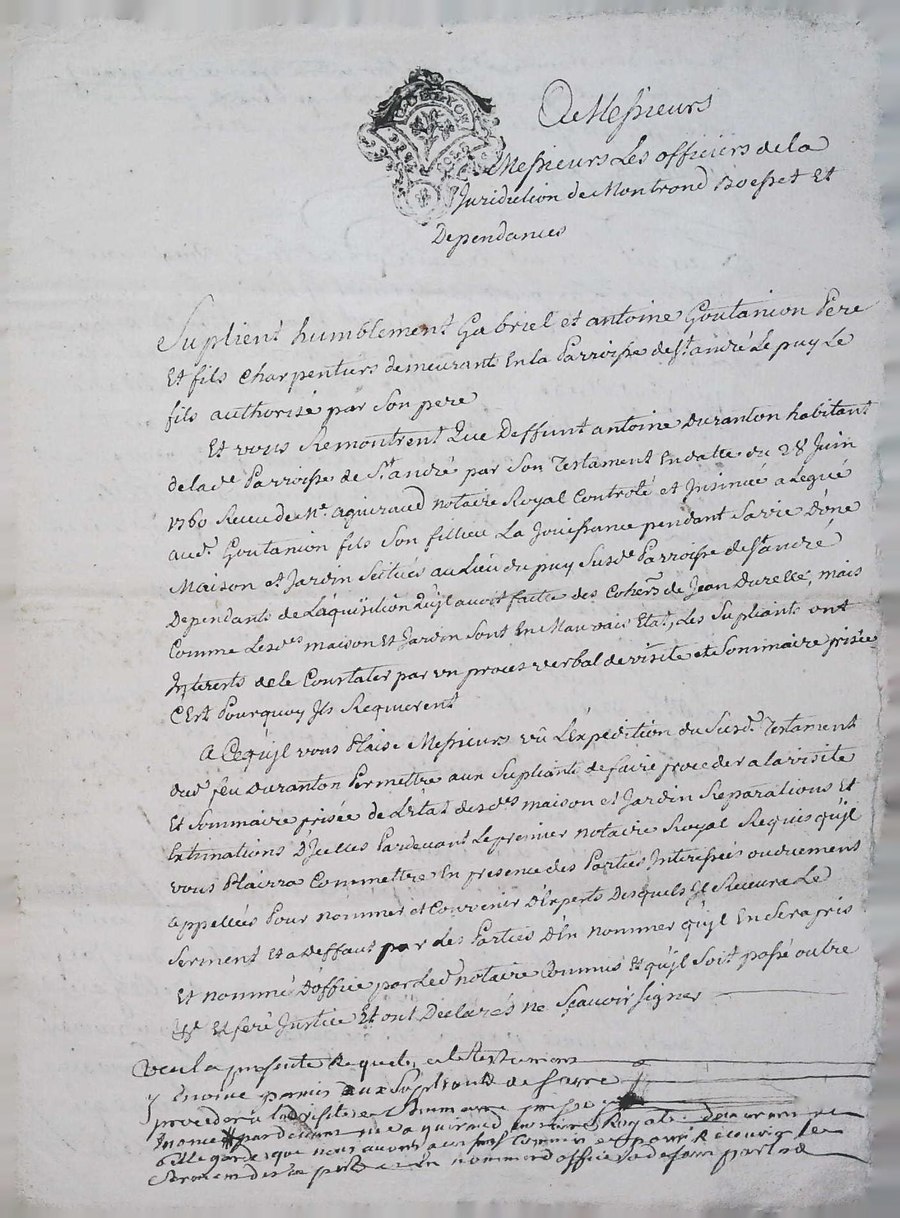 A Messieurs
Messieurs Les officiers de la
Juridiction de Montrond Boësset Et
Dependances
Suplient humblement Gabriel et antoine Goutanion Pere
Et fils charpentiers demeurant En la Parroisse de St andré Le puy Le
fils authorisé par Son pere
Et vous Remontrent Que Deffunt antoine Duranton habitant
de lade Parroisse de St andré par Son Testament En datte du 28 Juin
1760 Recu de Me aguiraud notaire Royal Controlé et Insinué a Legué
aud. Goutanion fils Son fillieu La Jouissance pendant Sa vie D'une
Maison et Jardin Scitués au Lieu du puy Susde Parroisse de St andré
Dependants de L'aquisition Qu'jl avoit faitte des Cohers de Jean Durelle, mais
Comme Lesdes maison Et Jardin Sont En Mauvais Etat, Les Supliants ont
Interets de le Constater par un proces verbal de visite et Sommaire prisée
C'Est Pourquoy Jls Requierent
A Ce qu'jl vous Plaise Messieurs vû L'Expedition du Susd. Testament
dud. feu Duranton Permettre aux Supliants de faire proceder a la visite
Et Sommaire prisée de L'Etat desdes maison et Jardin Reparations Et
Estimations D'Jcelles Pardevant Le premier notaire Royal Requis qu'jl
vous Plairra Commettre En presence des Parties Interessées ou duement
appellées Pour nommer et Convenir D'Experts Desquels Jl Recevra Le
Serment Et a Deffaut par des Parties D'En nommer qu'jl En Sera pris
Et nommé D'office par Led. notaire Commis Et qu'jl Soit passé outre
Et feré Justice Et ont Declarés ne Sçavoir Signer
Veu la presente Requete et le testament
permis aux Supliants de faire
proceder a la visite et Sommaire prisée
pardevant me aguiraud notaire Royal
que nous avons commis pour Recevoir le
Serment des Experts nommer d'office a deffaut par les